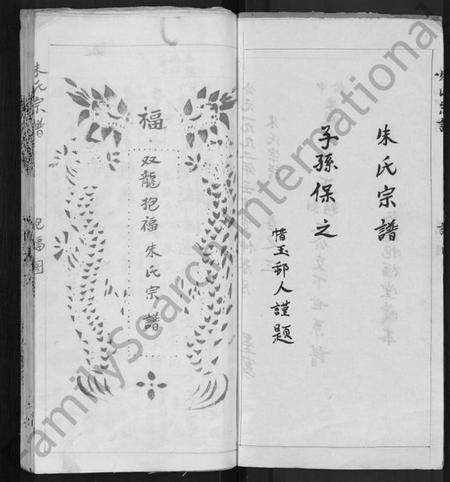 朱氏宗譜
子孫保之
惜玉邨人謹題
福
双龍抱福朱氏宗譜
朱氏宗譜
抱福圖
FamilySearch International